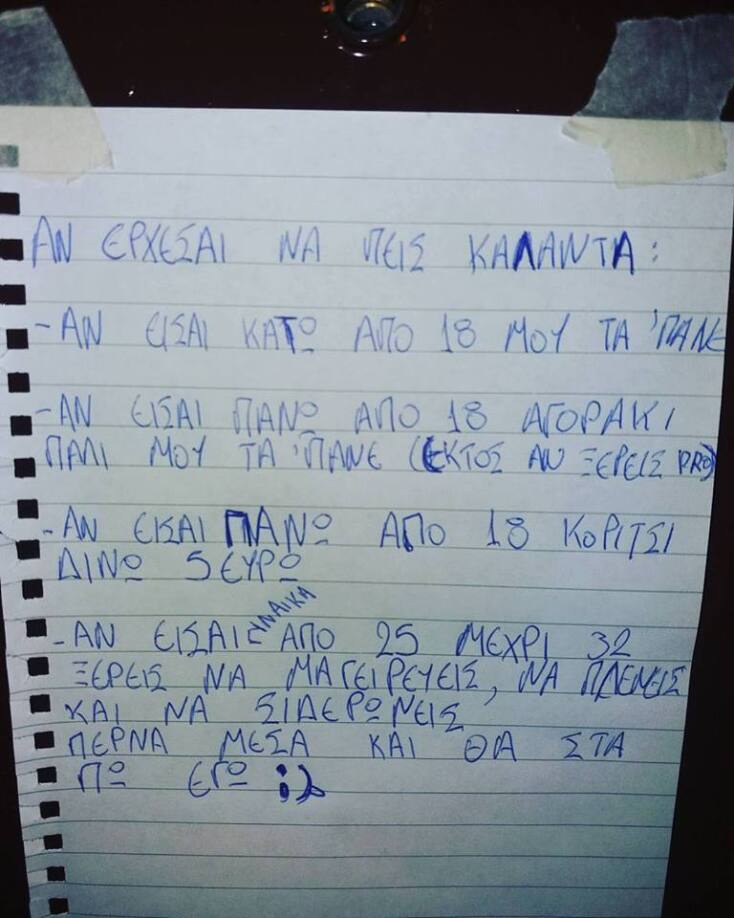 ΑΝ ΕΡΧΕΣΑΙ ΝΑ ΠΕΙΣ ΚΑΛΑΝΤΑ:
-ΑΝ ΕΙΣΑΙ ΚΑΤΩ ΑΠΟ 18 ΜΟΥ ΤΑ 'ΠΑΝΕ
-ΑΝ ΕΙΣΑΙ ΠΑΝΩ ΑΠΟ 18 ΑΓΟΡΑΚΙ
ΠΑΛΙ ΜΟΥ ΤΑ 'ΠΑΝΕ (ΕΚΤΟΣ ΑΝ ΞΕΡΕΙΣ PRO)
-ΑΝ ΕΙΣΑΙ ΠΑΝΩ ΑΠΟ 18 ΚΟΡΙΤΣΙ
ΔΙΝΩ 5 ΕΥΡΩ
-ΑΝ ΕΙΣΑΙ ΓΥΝΑΙΚΑ ΑΠΟ 25 ΜΕΧΡΙ 32
ΞΕΡΕΙΣ ΝΑ ΜΑΓΕΙΡΕΥΕΙΣ, ΝΑ ΠΛΕΝΕΙΣ
ΚΑΙ ΝΑ ΣΙΔΕΡΩΝΕΙΣ
ΠΕΡΝΑ ΜΕΣΑ ΚΑΙ ΘΑ ΣΤΑ
ΠΩ ΕΓΩ ;)